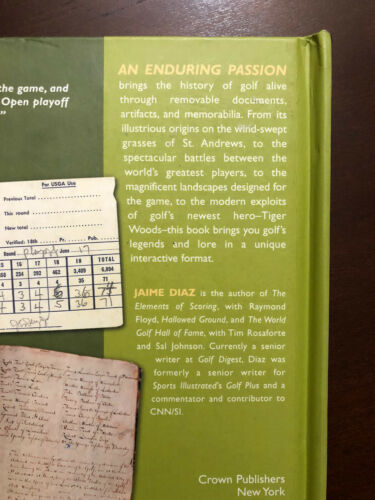 the game, and
Open playoff
"
For USGA Use
Previous Total
This round
New total
Verified: 18th Pr. Pub.
Round playoff June 17
15 16 17 18 IN TOTAL
234 202 462 3,409 6,894
4 3 4 5 36 71
AN ENDURING PASSION
brings the history of golf alive
through removable documents,
artifacts, and memorabilia. From its
illustrious origins on the wind-swept
grasses of St. Andrews, to the
spectacular battles between the
world's greatest players, to the
magnificent landscapes designed for
the game, to the modern exploits
of golf's newest hero–Tiger
Woods–this book brings you golf's
legends and lore in a unique
interactive format.
JAIME DIAZ is the author of The
Elements of Scoring, with Raymond
Floyd, Hallowed Ground, and The World
Golf Hall of Fame, with Tim Rosaforte
and Sal Johnson. Currently a senior
writer at Golf Digest, Diaz was
formerly a senior writer for
Sports Illustrated's Golf Plus and a
commentator and contributor to
CNN/SI.
Crown Publishers
New York